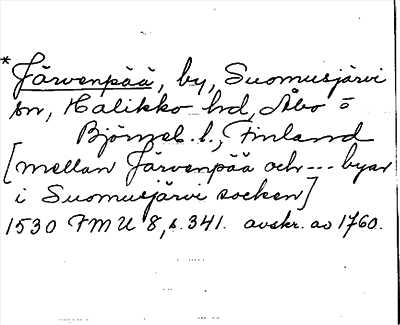 * Järvenpää, by, Suomusjärvi
sn, Halikko hd, Åbo o
Björneb. l., Finland
[mellan Järvenpää och --- byar
i Suomusjärvi socken]
1530 FMU 8, s. 341. avskr. av 1760.